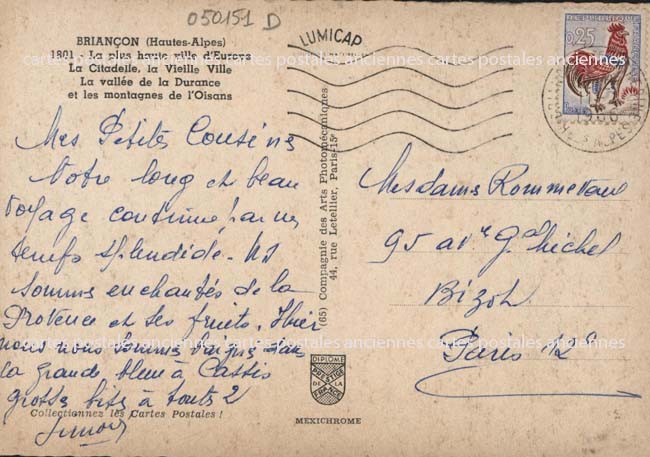 050151 D
BRIANÇON (Hautes-Alpes)
1801 - La plus haute ville d'Europe
La Citadelle, la Vieille Ville
La vallée de la Durance
et les montagnes de l'Oisans
LUMICAP
0,25
cartes postales anciennes cartes postales anciennes cartes postales anciennes
Mes Petites Cousines
Notre long et beau
voyage continue par un
temps splendide. Ns
sommes enchantés de la
Provence et ses fruits. Hier
nous nous sommes baignés dans
la grande bleue à Cassis
grosse bise à toutes 2
(65) Compagnie des Arts Photomécaniques
44, rue Letellier, Paris-15e
Mesdames
95 ave Gal Michel
Bizot
Paris 12e
cartes postales anciennes cartes postales anciennes cartes postales anciennes
DIPLOME
PRESTIGE
DE LA
FRANCE
Collectionnez les Cartes Postales !
MEXICHROME